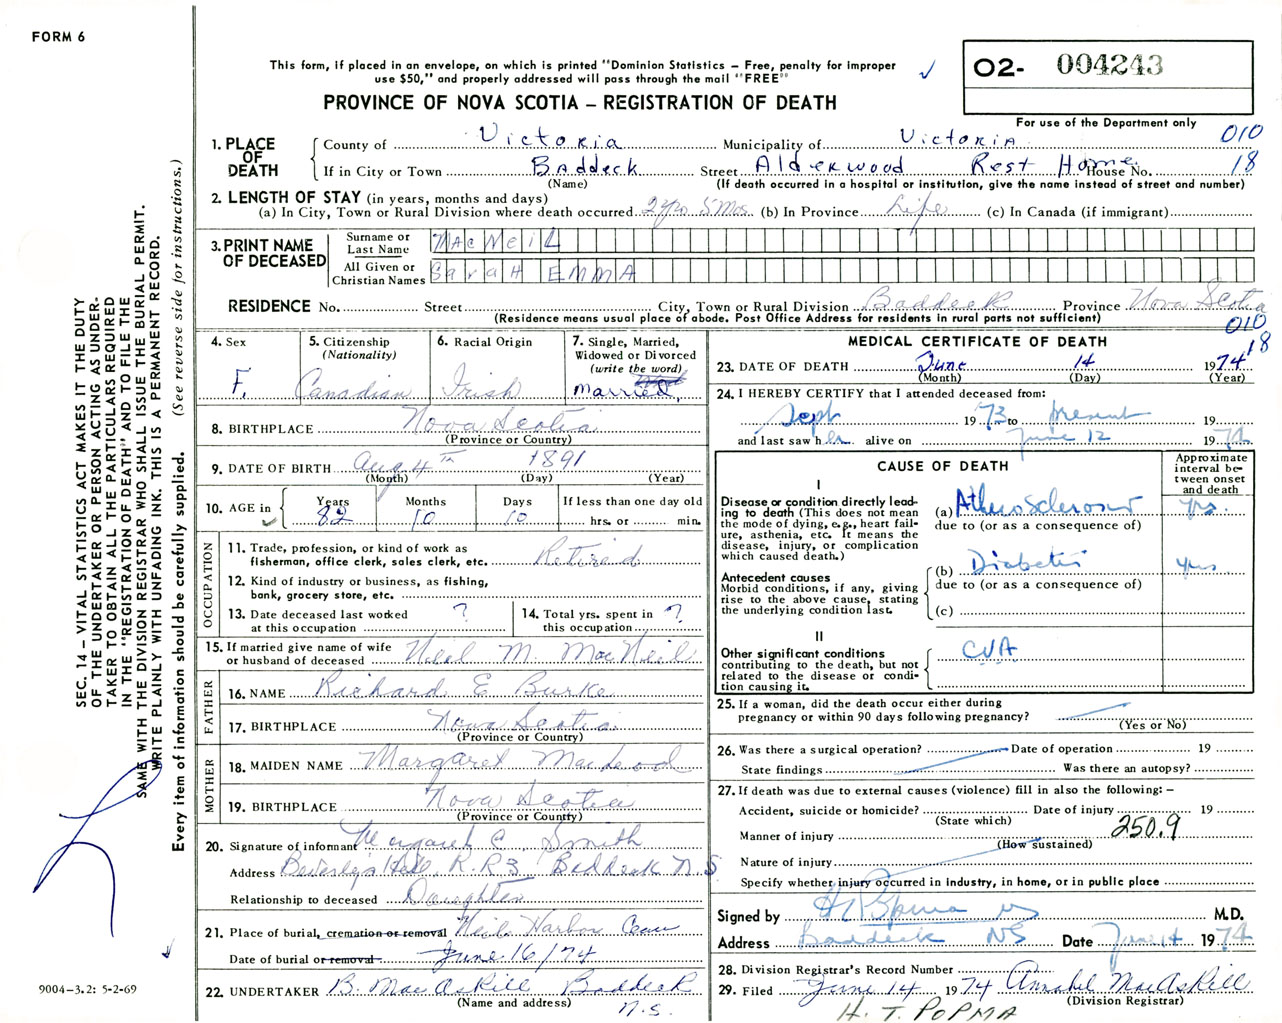 FORM 6
This form, if placed in an envelope, on which is printed "Dominion Statistics — Free, penalty for improper
use $50," and properly addressed will pass through the mail "FREE"
PROVINCE OF NOVA SCOTIA — REGISTRATION OF DEATH
O2- 004243
For use of the Department only
1. PLACE OF DEATH
County of Victoria Municipality of Victoria 010
If in City or Town Baddeck Street Alderwood Rest Home House No. 18
(Name) (If death occurred in a hospital or institution, give the name instead of street and number)
2. LENGTH OF STAY (in years, months and days)
(a) In City, Town or Rural Division where death occurred 2 yrs 5 Mos (b) In Province Life (c) In Canada (if immigrant)
3. PRINT NAME OF DECEASED
Surname or Last Name MacNeil
All Given or Christian Names Sarah EMMA
RESIDENCE No. Street City, Town or Rural Division Baddeck Province Nova Scotia
(Residence means usual place of abode. Post Office Address for residents in rural parts not sufficient)
010
18
4. Sex F.
5. Citizenship (Nationality) Canadian
6. Racial Origin Irish
7. Single, Married, Widowed or Divorced (write the word) married.
8. BIRTHPLACE Nova Scotia
(Province or Country)
9. DATE OF BIRTH Aug 4th 1891
(Month) (Day) (Year)
10. AGE in Years 82 Months 10 Days 10 If less than one day old hrs. or min.
OCCUPATION
11. Trade, profession, or kind of work as
fisherman, office clerk, sales clerk, etc. Retired
12. Kind of industry or business, as fishing,
bank, grocery store, etc.
13. Date deceased last worked at this occupation ?
14. Total yrs. spent in this occupation ?
15. If married give name of wife
or husband of deceased Neil M. MacNeil
FATHER
16. NAME Richard E Burke
17. BIRTHPLACE Nova Scotia
(Province or Country)
MOTHER
18. MAIDEN NAME Margaret
19. BIRTHPLACE Nova Scotia
(Province or Country)
20. Signature of informant Margaret C. Smith
Address Hill, R.R3 Baddeck N.S
Relationship to deceased Daughter
21. Place of burial, cremation or removal Neils Harbor Cem
Date of burial or removal June 16/74
22. UNDERTAKER B. MacAskill Baddeck
(Name and address) N.S.
MEDICAL CERTIFICATE OF DEATH
23. DATE OF DEATH June 14 1974
(Month) (Day) (Year)
24. I HEREBY CERTIFY that I attended deceased from:
Sept 1973 to present 19
and last saw her alive on June 12 1974
CAUSE OF DEATH
Approximate interval between onset and death
I
Disease or condition directly leading to death (This does not mean the mode of dying, e.g., heart failure, asthenia, etc. It means the disease, injury, or complication which caused death.)
(a) Atherosclerosis yrs.
due to (or as a consequence of)
Antecedent causes
Morbid conditions, if any, giving rise to the above cause, stating the underlying condition last.
(b) Diabetes yrs
due to (or as a consequence of)
(c)
II
Other significant conditions contributing to the death, but not related to the disease or condition causing it.
CVA
25. If a woman, did the death occur either during
pregnancy or within 90 days following pregnancy?
(Yes or No)
26. Was there a surgical operation? Date of operation 19
State findings Was there an autopsy?
27. If death was due to external causes (violence) fill in also the following: —
Accident, suicide or homicide? Date of injury 19
(State which) 250.9
Manner of injury
(How sustained)
Nature of injury
Specify whether injury occurred in industry, in home, or in public place
Signed by H T Popma M.D.
Address Baddeck NS Date June 14 1974
28. Division Registrar's Record Number
29. Filed June 14 1974 Annabel MacAskill
(Division Registrar)
H. T. POPMA
SEC. 14 — VITAL STATISTICS ACT MAKES IT THE DUTY
OF THE UNDERTAKER OR PERSON ACTING AS UNDERTAKER TO OBTAIN ALL THE PARTICULARS REQUIRED
IN THE "REGISTRATION OF DEATH" AND TO FILE THE
SAME WITH THE DIVISION REGISTRAR WHO SHALL ISSUE THE BURIAL PERMIT.
WRITE PLAINLY WITH UNFADING INK. THIS IS A PERMANENT RECORD.
Every item of information should be carefully supplied. (See reverse side for instructions.)
9004-3.2: 5-2-69